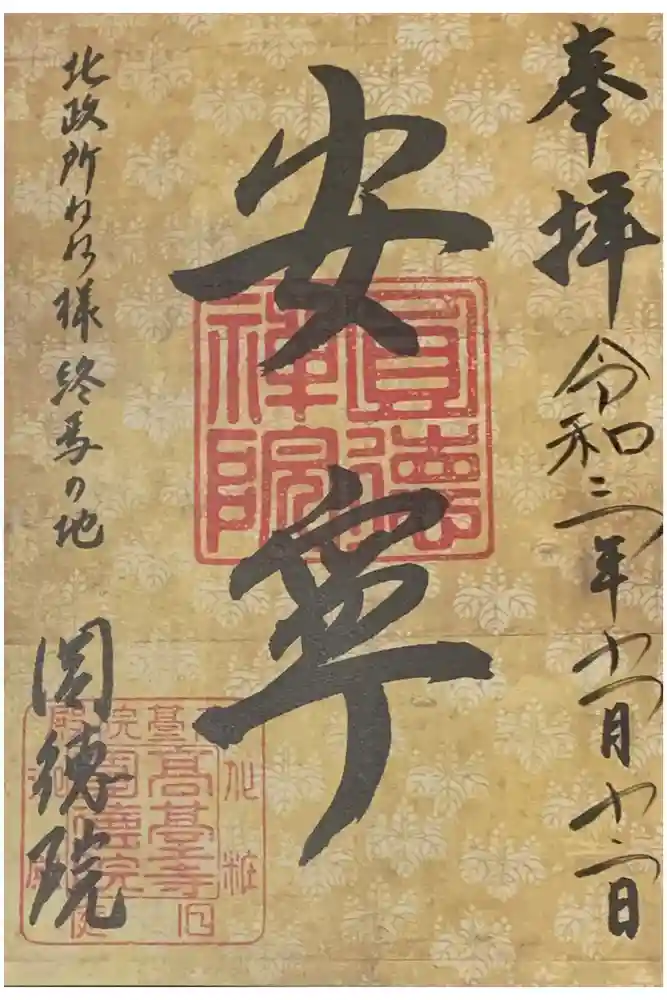 奉拝 令和三年十一月十二日
安寧
圓徳禅院
北政所ねね様終焉の地 圓徳院
高臺寺